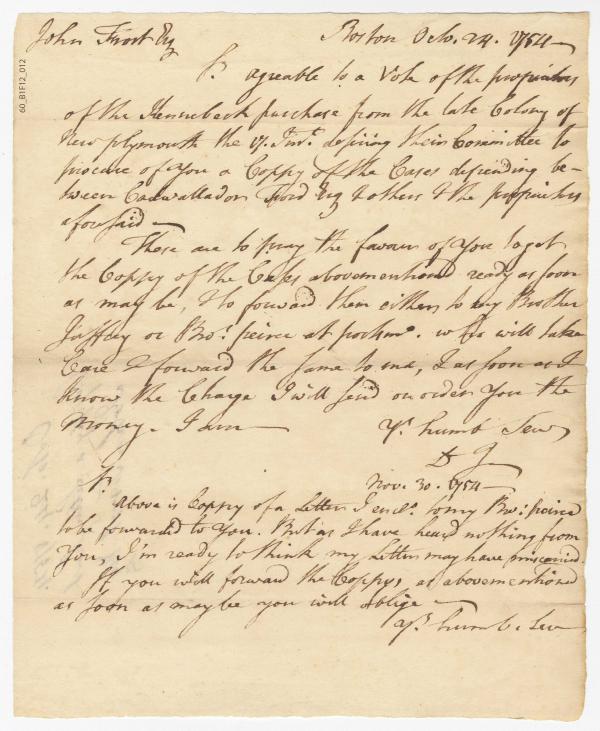 60_B1F12_012
John Frost Esq Boston Octo. 24. 1754
Sr. agreable to a Vote of the proprietors
of the Kennebeck purchase from the late Colony of
New plymouth the 17. Inst. desiring their Committee to
procure of You a Coppy of the Cases depending be-
tween Cadwallador Ford Esq & others & the proprietors
aforesaid
These are to pray the favour of You to get
the Coppy of the Cases abovementiond ready as soon
as may be, & to forward them either to my Brother
Jaffrey or Bror. peirce at portsmo. who will take
Care & forward the same to me, & as soon as I
know the Charge I will send or order You the
Money. I am Yr. humb Serv
D J
Nov. 30. 1754
Sr.
above is Coppy of a Letter I encl. to my Bror. peirce
to be forwarded to You. But as I have heard nothing from
You, I'm ready to think my Letters may have miscarried.
If you will forward the Coppys, as abovementioned
as soon as may be you will oblige
Yr. humb. Serv